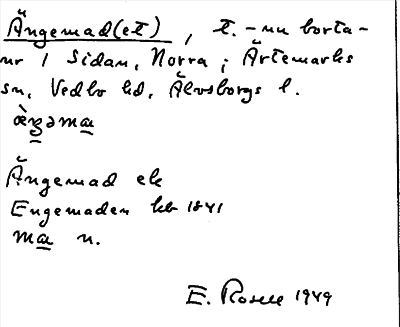 Ängemad(et), t. - nu borta-
nr 1 Sidan, Norra; Ärtemarks
sn, Vedbo hd, Älvsborgs l.
Ängemad ek
Engemaden kb 1841
ma n.
E. Rosell 1949